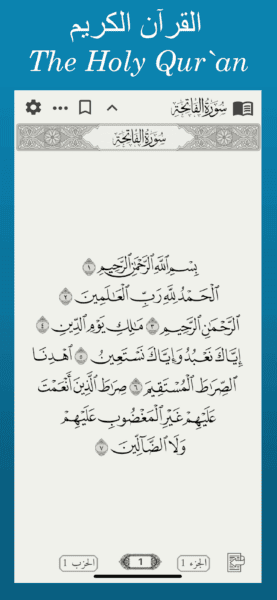 القرآن الكريم
The Holy Qur`an
سورة الفاتحة
سورة الفاتحة
بِسْمِ ٱللَّهِ ٱلرَّحْمَٰنِ ٱلرَّحِيمِ ١
ٱلْحَمْدُ لِلَّهِ رَبِّ ٱلْعَٰلَمِينَ ٢
ٱلرَّحْمَٰنِ ٱلرَّحِيمِ ٣ مَٰلِكِ يَوْمِ ٱلدِّينِ ٤
إِيَّاكَ نَعْبُدُ وَإِيَّاكَ نَسْتَعِينُ ٥ ٱهْدِنَا
ٱلصِّرَٰطَ ٱلْمُسْتَقِيمَ ٦ صِرَٰطَ ٱلَّذِينَ أَنْعَمْتَ
عَلَيْهِمْ غَيْرِ ٱلْمَغْضُوبِ عَلَيْهِمْ
وَلَا ٱلضَّآلِّينَ ٧
الجزء 1
1
الحزب 1